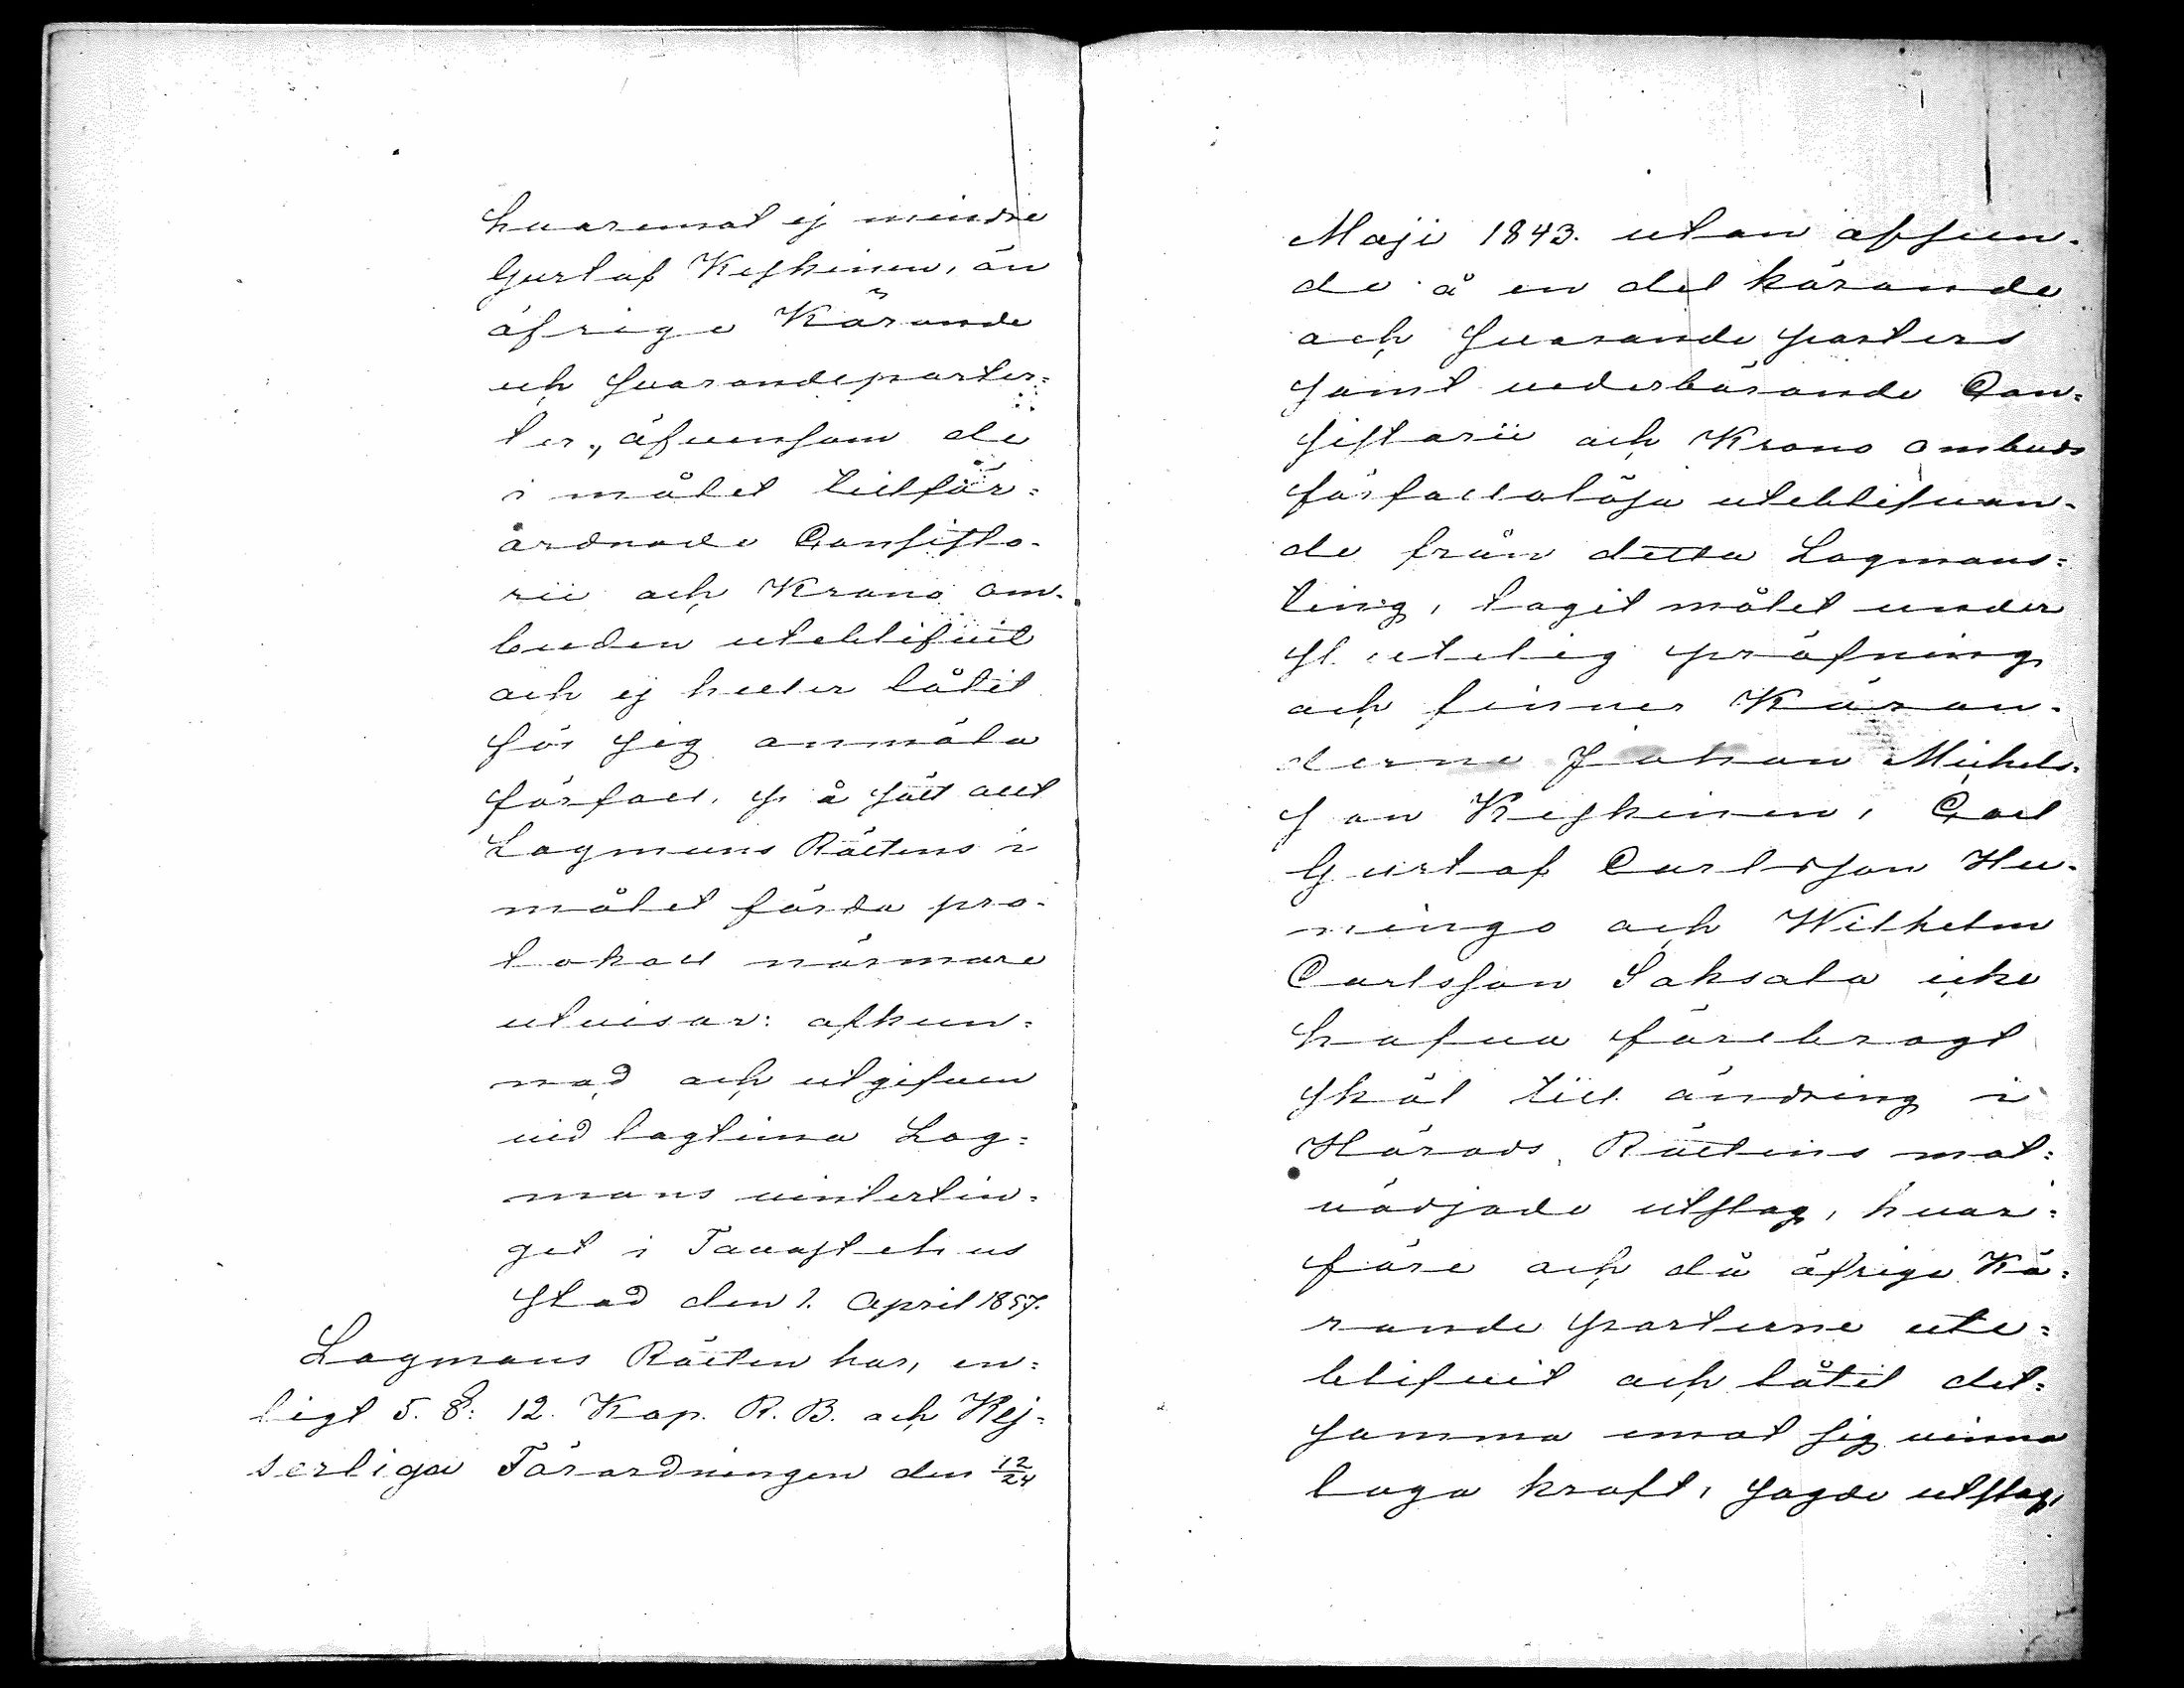 hvaremot ej mindre
Gustaf Keskinen, än
öfrige Kärande
och svarandeparter=
ter, äfvensom de
i målet tillför=
ordnade Consisto-
rii och Krono om-
buden uteblifvit
och ej heller låtit
för sig anmäla
förfall, på sätt allt
Lagmans Rättens i
målet förda pro-
tokoll närmare
utvisar: afkun=
nad och utgifven
vid lagtima Lag=
mans vintertin=
get i Tavastehus
stad den 1. April 1857.
Lagmans Rätten har, en=
ligt 5. §: 12. Kap. R. B. och Kej=
serliga Förordningen den 12/24
Maji 1843. utan afseen-
de å en del kärande
och svarande parters
samt vederbörande Con=
sistorii och Krono ombuds
förfallolösa uteblifvan-
de från detta Lagmans=
ting, tagit målet under
slutelig pröfning
och finner Käran-
derne Johan Michels-
son Keskinen, Carl
Gustaf Carlsson Hu-
ningo och Wilhelm
Carlsson Saksala icke
hafva förebragt
skäl till ändring i
Härads Rättens mot=
vädjade utslag, hvar=
före och då öfrige Kä=
rande parterne ute=
blifvit och låtit det=
samma emot sig vinna
laga kraft, sagde utslag,